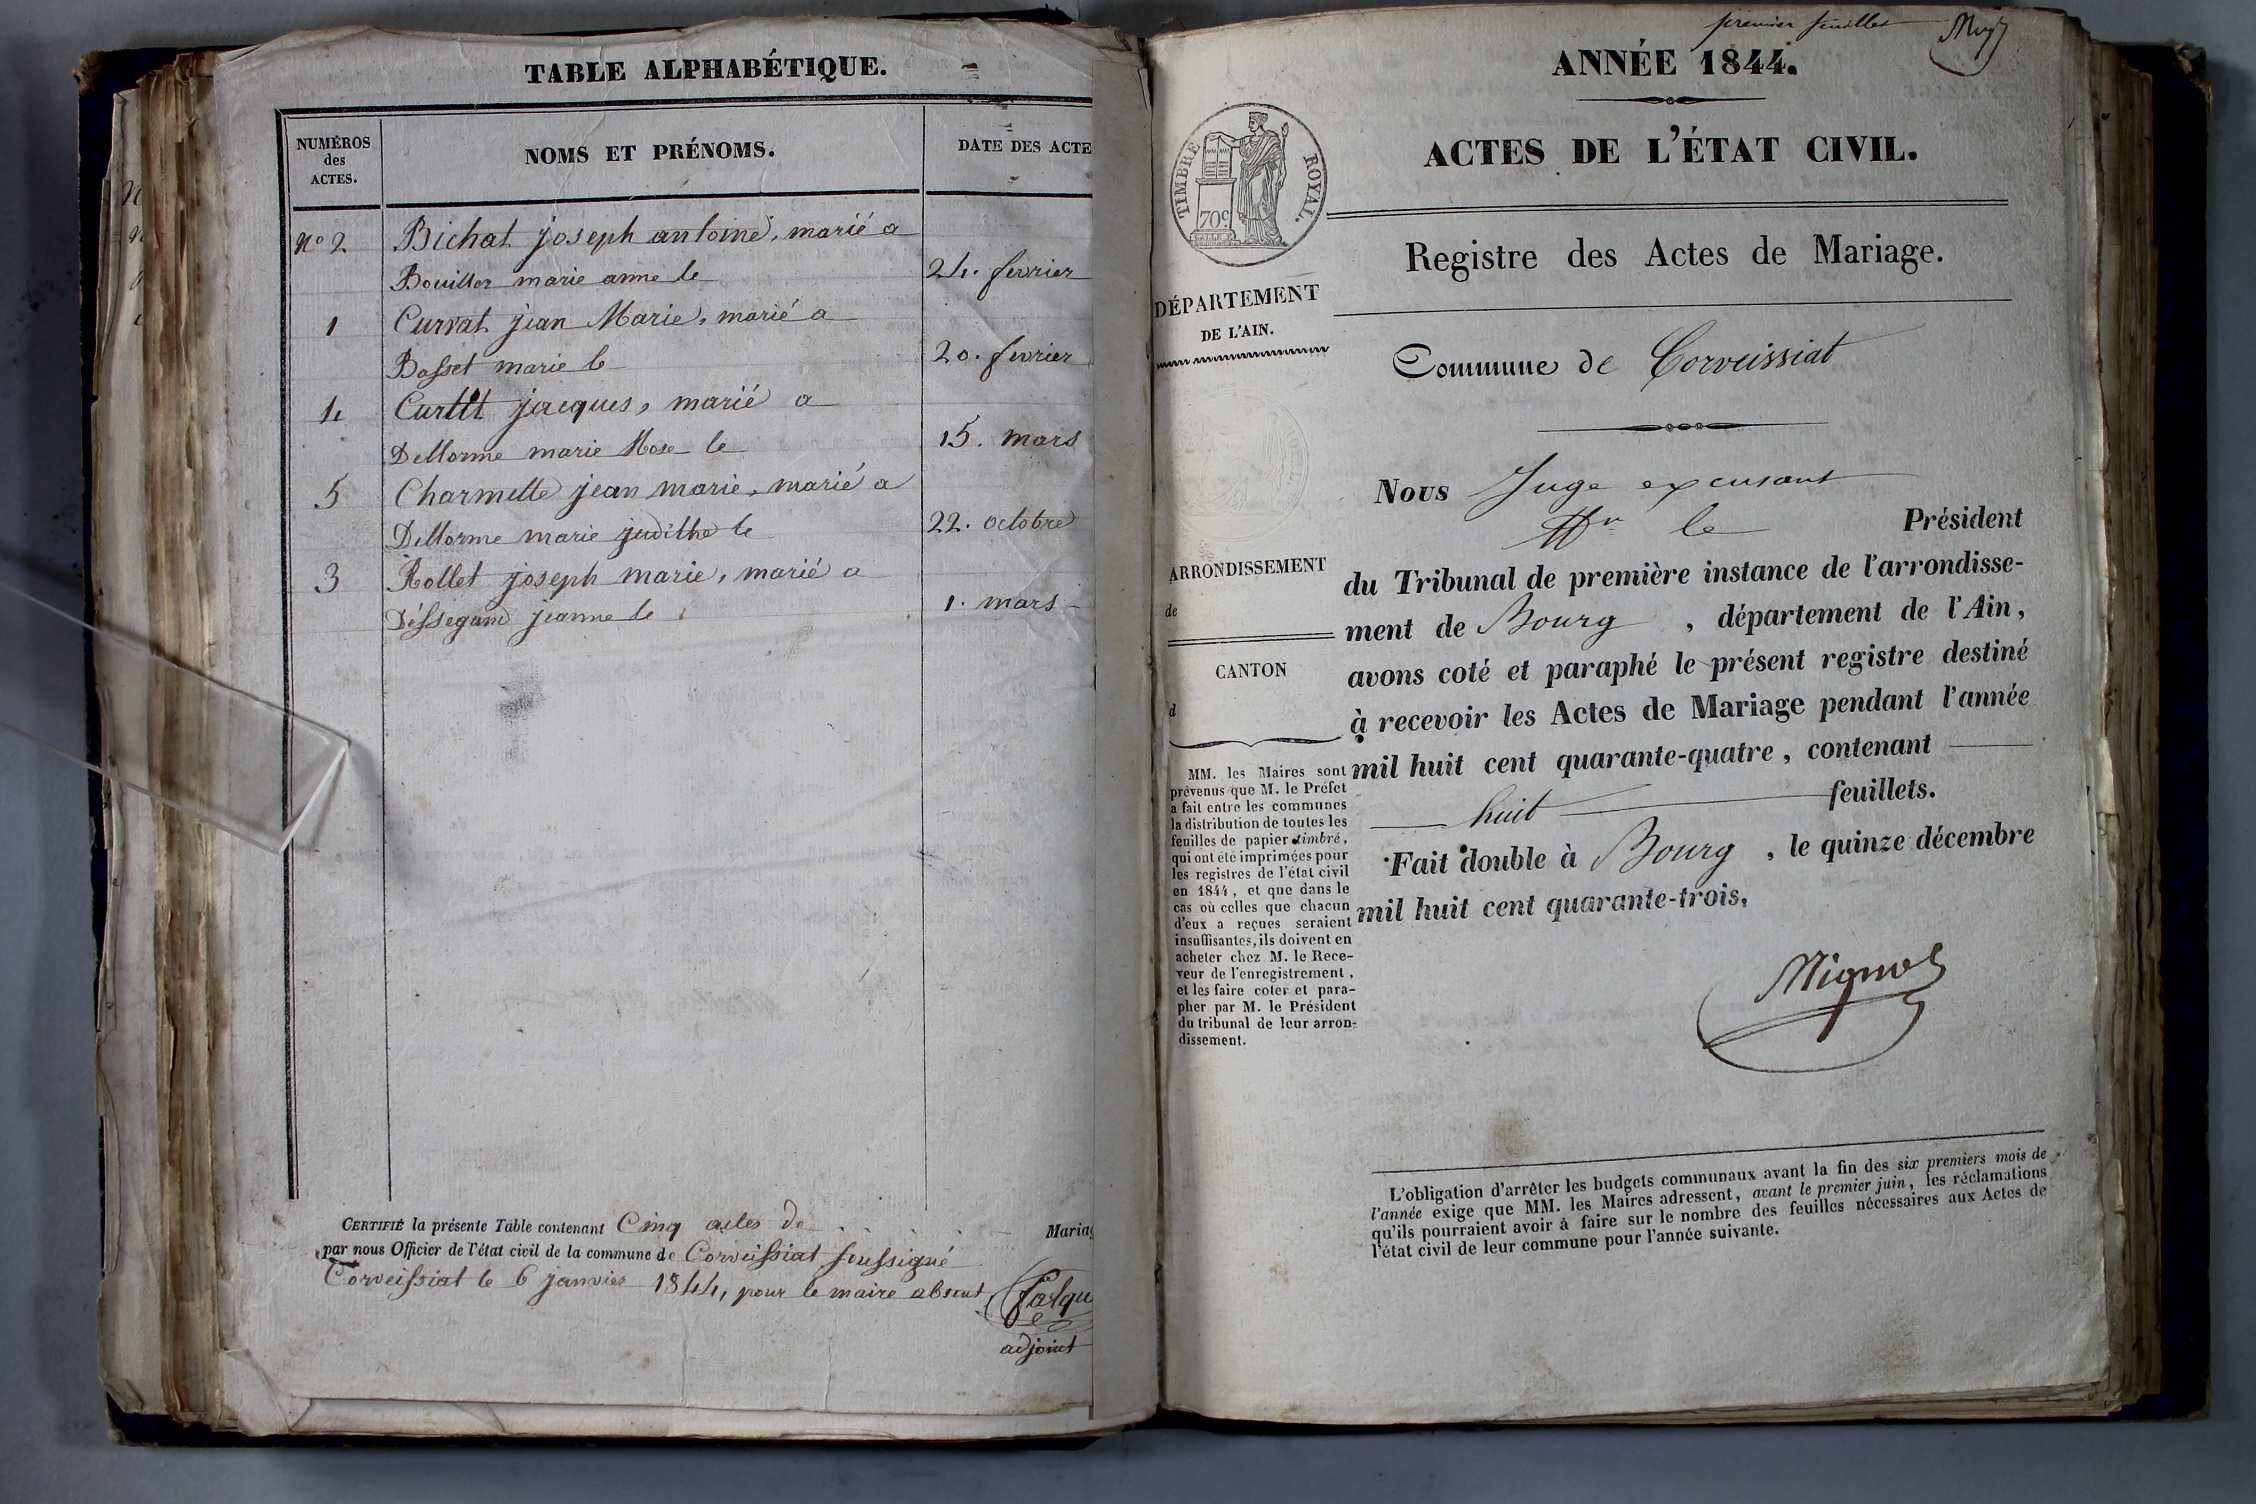 TABLE ALPHABÉTIQUE.
NUMÉROS
des
ACTES.
NOMS ET PRÉNOMS.
DATE DES ACTE
N° 2 Bichat joseph antoine, marié a
Bouiller marie anne le 24. fevrier
1 Curvat jean Marie, marié a
Basset marie le 20. fevrier
4 Curtit jacques, marié a
Dellorme marie Rose le 15. mars
5 Charmette jean marie, marié a
Dellorme marie judithe le 22. octobre
3 Rollet joseph marie, marié a
jeanne le 1. mars
CERTIFIÉ la présente Table contenant Cinq actes de Maria
par nous Officier de l'état civil de la commune de Corveissiat soussigné
Corveissiat le 6 janvier 1844, pour le maire absent
adjoint
premier feuillet
ANNÉE 1844.
ACTES DE L'ÉTAT CIVIL.
TIMBRE ROYAL.
70c
Registre des Actes de Mariage.
DÉPARTEMENT
DE L'AIN.
Commune de Corveissiat
Nous Juge excusant
Mr le Président
ARRONDISSEMENT
de
CANTON
d
du Tribunal de première instance de l'arrondisse-
ment de Bourg, département de l'Ain,
avons coté et paraphé le présent registre destiné
à recevoir les Actes de Mariage pendant l'année
mil huit cent quarante-quatre, contenant
huit feuillets.
Fait double à Bourg, le quinze décembre
mil huit cent quarante-trois,
MM. les Maires sont
prévenus que M. le Préfet
a fait entre les communes
la distribution de toutes les
feuilles de papier timbré,
qui ont été imprimées pour
les registres de l'état civil
en 1844, et que dans le
cas où celles que chacun
d'eux a reçues seraient
insuffisantes, ils doivent en
acheter chez M. le Rece-
veur de l'enregistrement,
et les faire coter et para-
pher par M. le Président
du tribunal de leur arron-
dissement.
L'obligation d'arrêter les budgets communaux avant la fin des six premiers mois de
l'année exige que MM. les Maires adressent, avant le premier juin, les réclamations
qu'ils pourraient avoir à faire sur le nombre des feuilles nécessaires aux Actes de
l'état civil de leur commune pour l'année suivante.